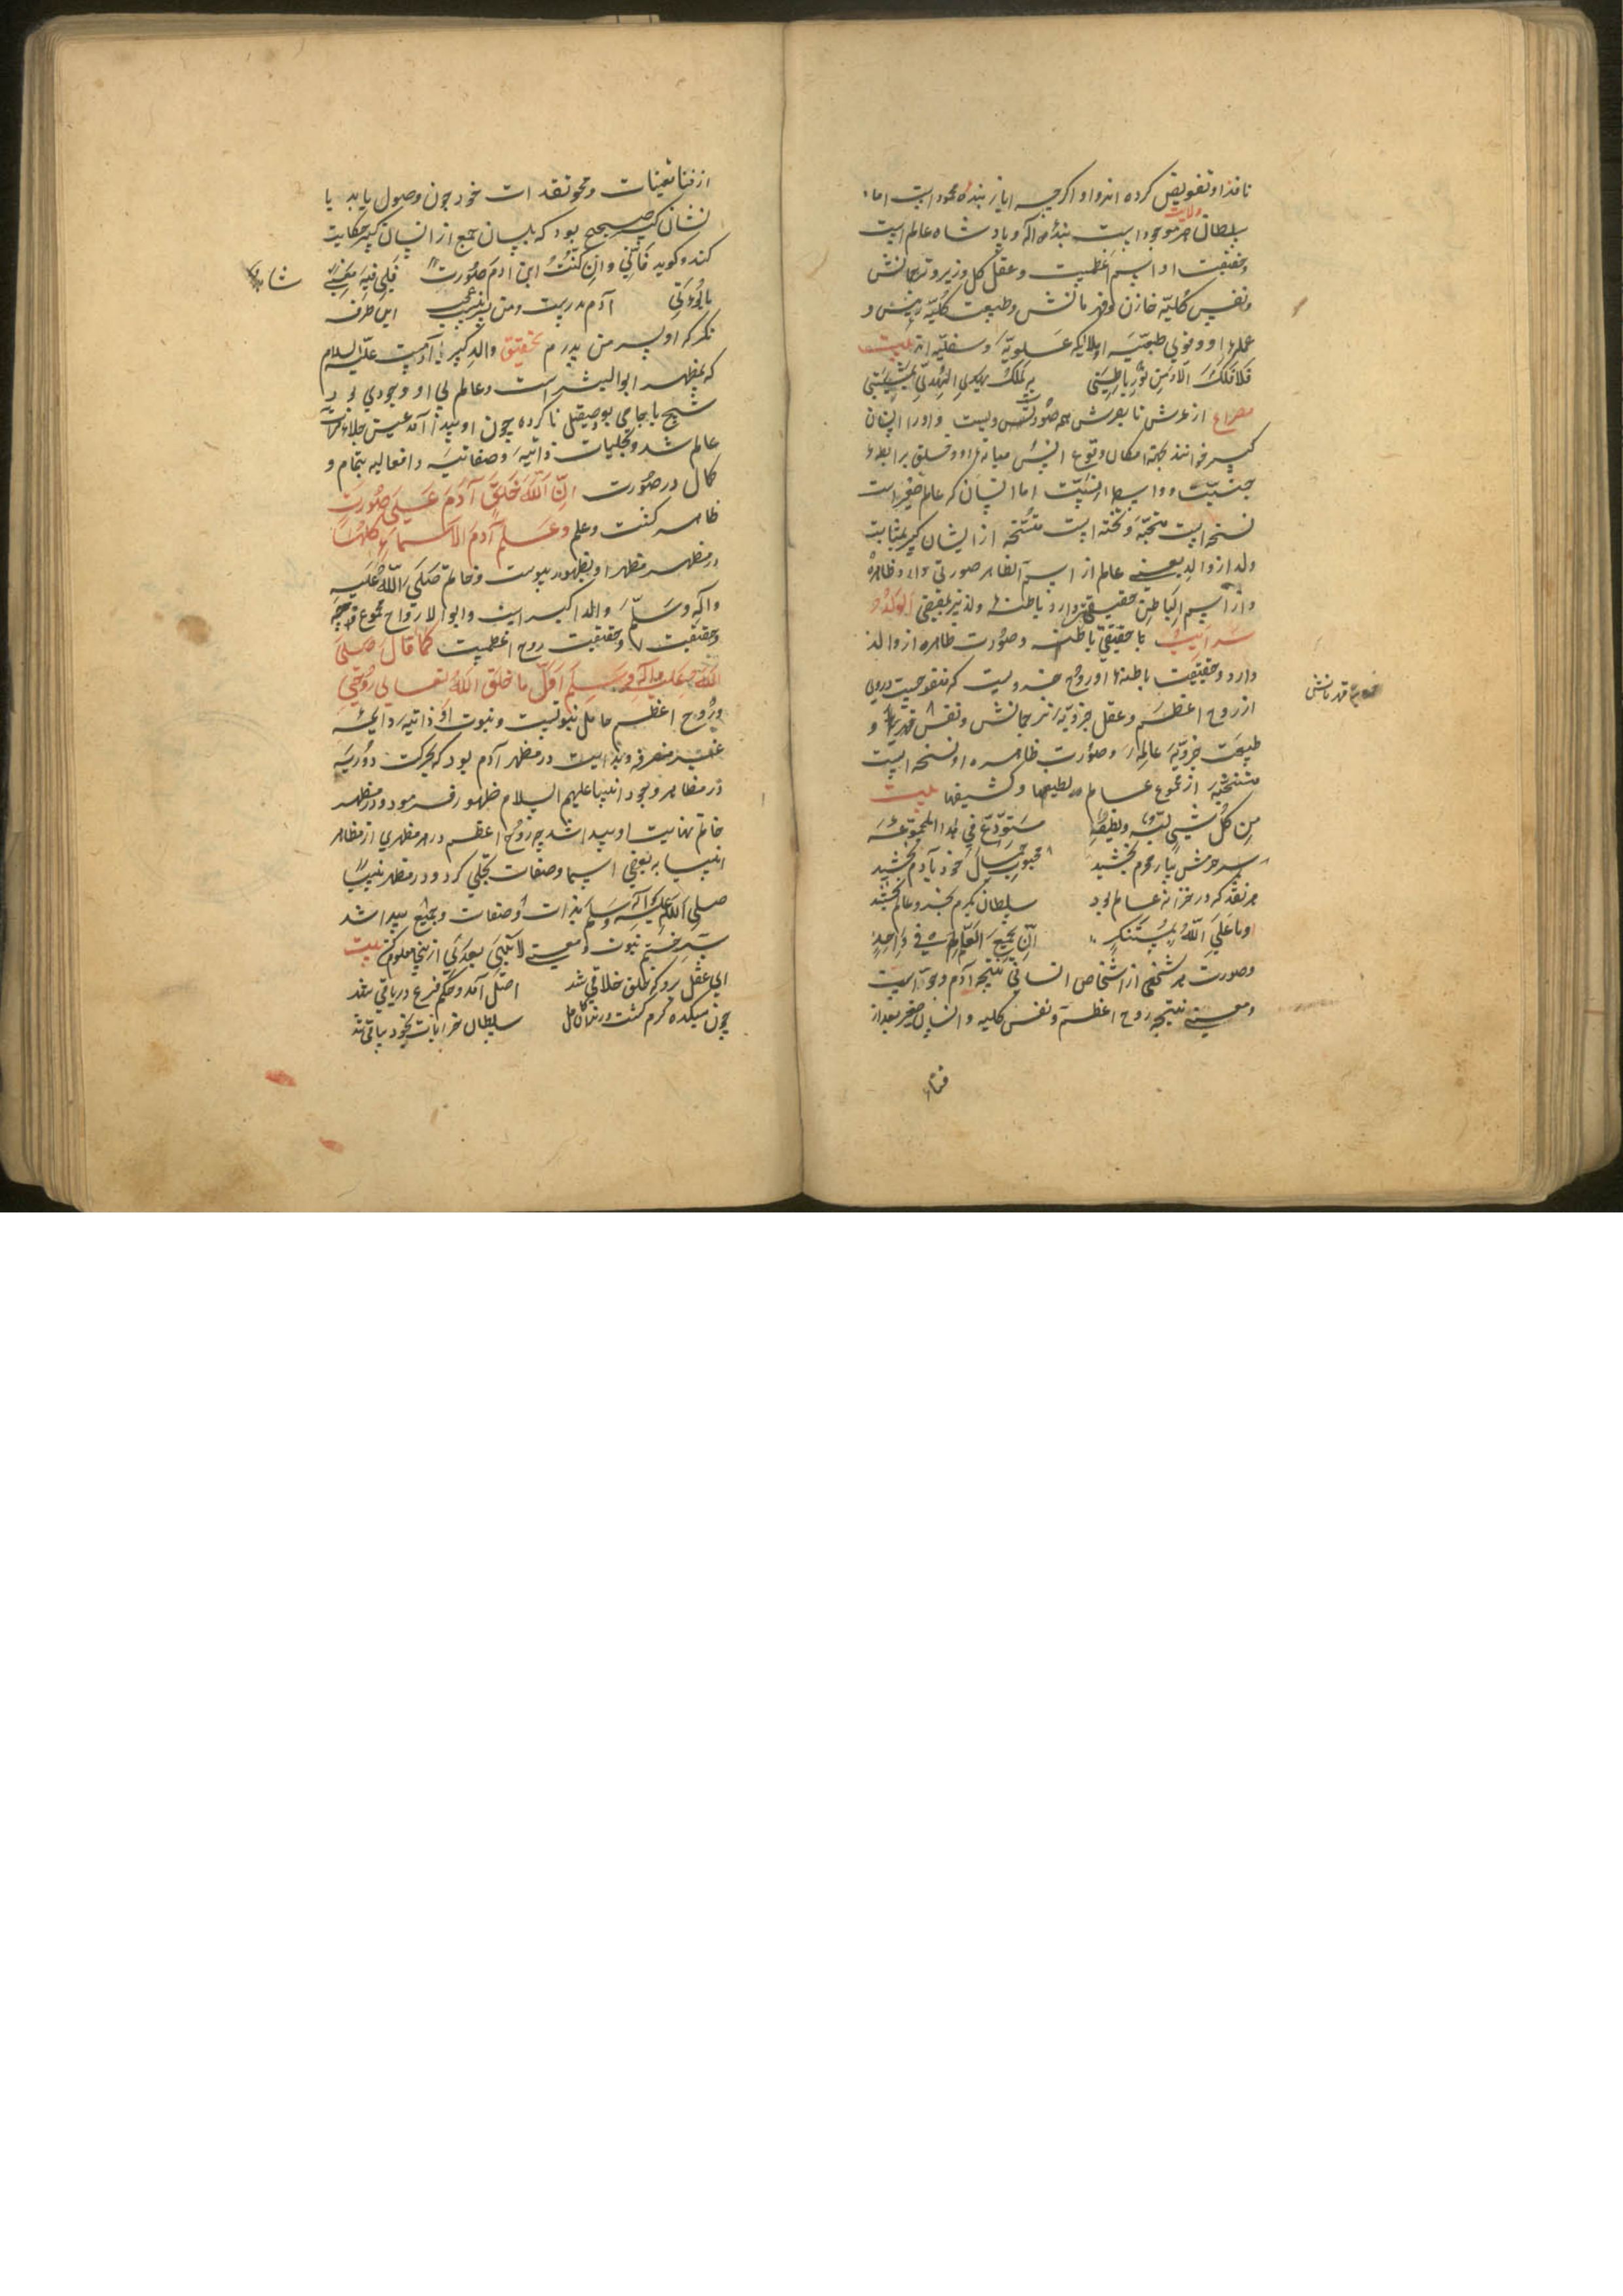 نافذ او تفویض کرده اند و او اگرچه ایاز بنده محمود است اما
ولایت
سلطان هر موجود است بنده درگاه و پادشاه عالم است
و حقیقت او اسم اعظمست و عقل کل وزیر و ترجمانش
و نفس کلیه خازن و قهرمانش و طبیعت کلیه رئیس و
عمله او و قوی طبیعیه او ملایکه علویه و سفلیه اند بیت
فلا فلک الا و من نور باطنی به ملک یهدی الهدی بمشیئتی
مصراع از عرش تا بفرش همه صورت ویست و او را انسان
کبیر خوانند بجهة امکان وقوع انس میانه او و خلق برابطه
جنسیت و واسطه انسیت اما انسان که عالم صغیر است
نسخه ایست منتخبه و نخبه ایست منتسخه از انسان کبیر بمثابت
ولد از والد یعنی عالم از اسم الظاهر صورتی دارد ظاهره
و از اسم الباطن حقیقتی دارد باطنه و ولد نیز بمقتضی الولد
سر ابیه با حقیقتی باطنه و صورت ظاهره از والد
دارد و حقیقت باطنه او روح جزویست که منفوخیست در وی
از روح اعظم و عقل جزویه ترجمانش و نفس قهرمان و
طبیعت جزویه عامله و صورت ظاهره او نسخه ایست
منتسخه از مجموع عالم لطیفها و کثیفها بیت
من کل شیء لبه و لطیفه مستودع فی هذا المجموعة
سر حرمش بیار محرم بخشید محبوب جمال خود بآدم بخشید
هر نقد که در خزانه عالم بود سلطان بکرم بخرد عالم بخشید
و ما علی الله بمستنکر ان یجمع العالم فی واحد
و صورت هر شخصی از اشخاص انسانی نتیجه آدم و حوا است
و معنی نتیجه روح اعظم و نفس کلیه و انسان صغیر بعد از
فناء
قهرمانش
از فنا تعینات و محو تقیدات خود چون وصول یابد با
انسان کبیر صحیح بود که بلسان جمع از انسان کبیر حکایت
کند و گوید فانی و ان کنت ابن ادم صورة فلی فیه معنی شاهد
بابوتی آدم پدرست و من پسر عجب این طرفه
نگر که او پسر من پدرم تحقیق والد کبیر آدمست علیه السلام
که بمظهر ابو البشر است و عالم بی او وجودی بود
شبح یا جامی بود صیقل ناکرده چون او پیدا آمد عین جلاء مرآت
عالم شد و تجلیات ذاتیه و صفاتیه و افعالیه بتمام و
کمال در صورت ان الله خلق آدم علی صورته
ظاهر گشت و علم و علم آدم الاسماء کلها
در مظهر مظهر او بظهور پیوست و خاتم صلی الله علیه
و آله و سلم والد اکبر است و ابو الارواح
و حقیقت او حقیقت روح اعظمست کما قال صلی
الله علیه و آله و سلم اول ما خلق الله تعالی روحی
و روح اعظم حامل نبوتست و نبوت او ذاتیه دایمه
غیر منصرفه و بدایت در مظهر آدم بود که بحرکت دوریه
در مظاهر وجود انبیا علیهم السلام ظهور فرمود و در مظهر
خاتم نهایت او پیدا شد چه روح اعظم در هر مظهری از مظاهر
انبیا به بعضی اسما و صفات تجلی کرد و در مظهر نبینا
صلی الله علیه و آله و سلم بذات و صفات و بجمیع پیدا شد
سر ختم نبوت و معنی لا نبی بعدی ازینجا معلوم کن بیت
ای عقل برو که خلق خلاقی شد اصل آمد و حکم فرع در باقی شد
چون میکده گرم گشت و رندان کامل سلطان خرابات بخود ساقی شد